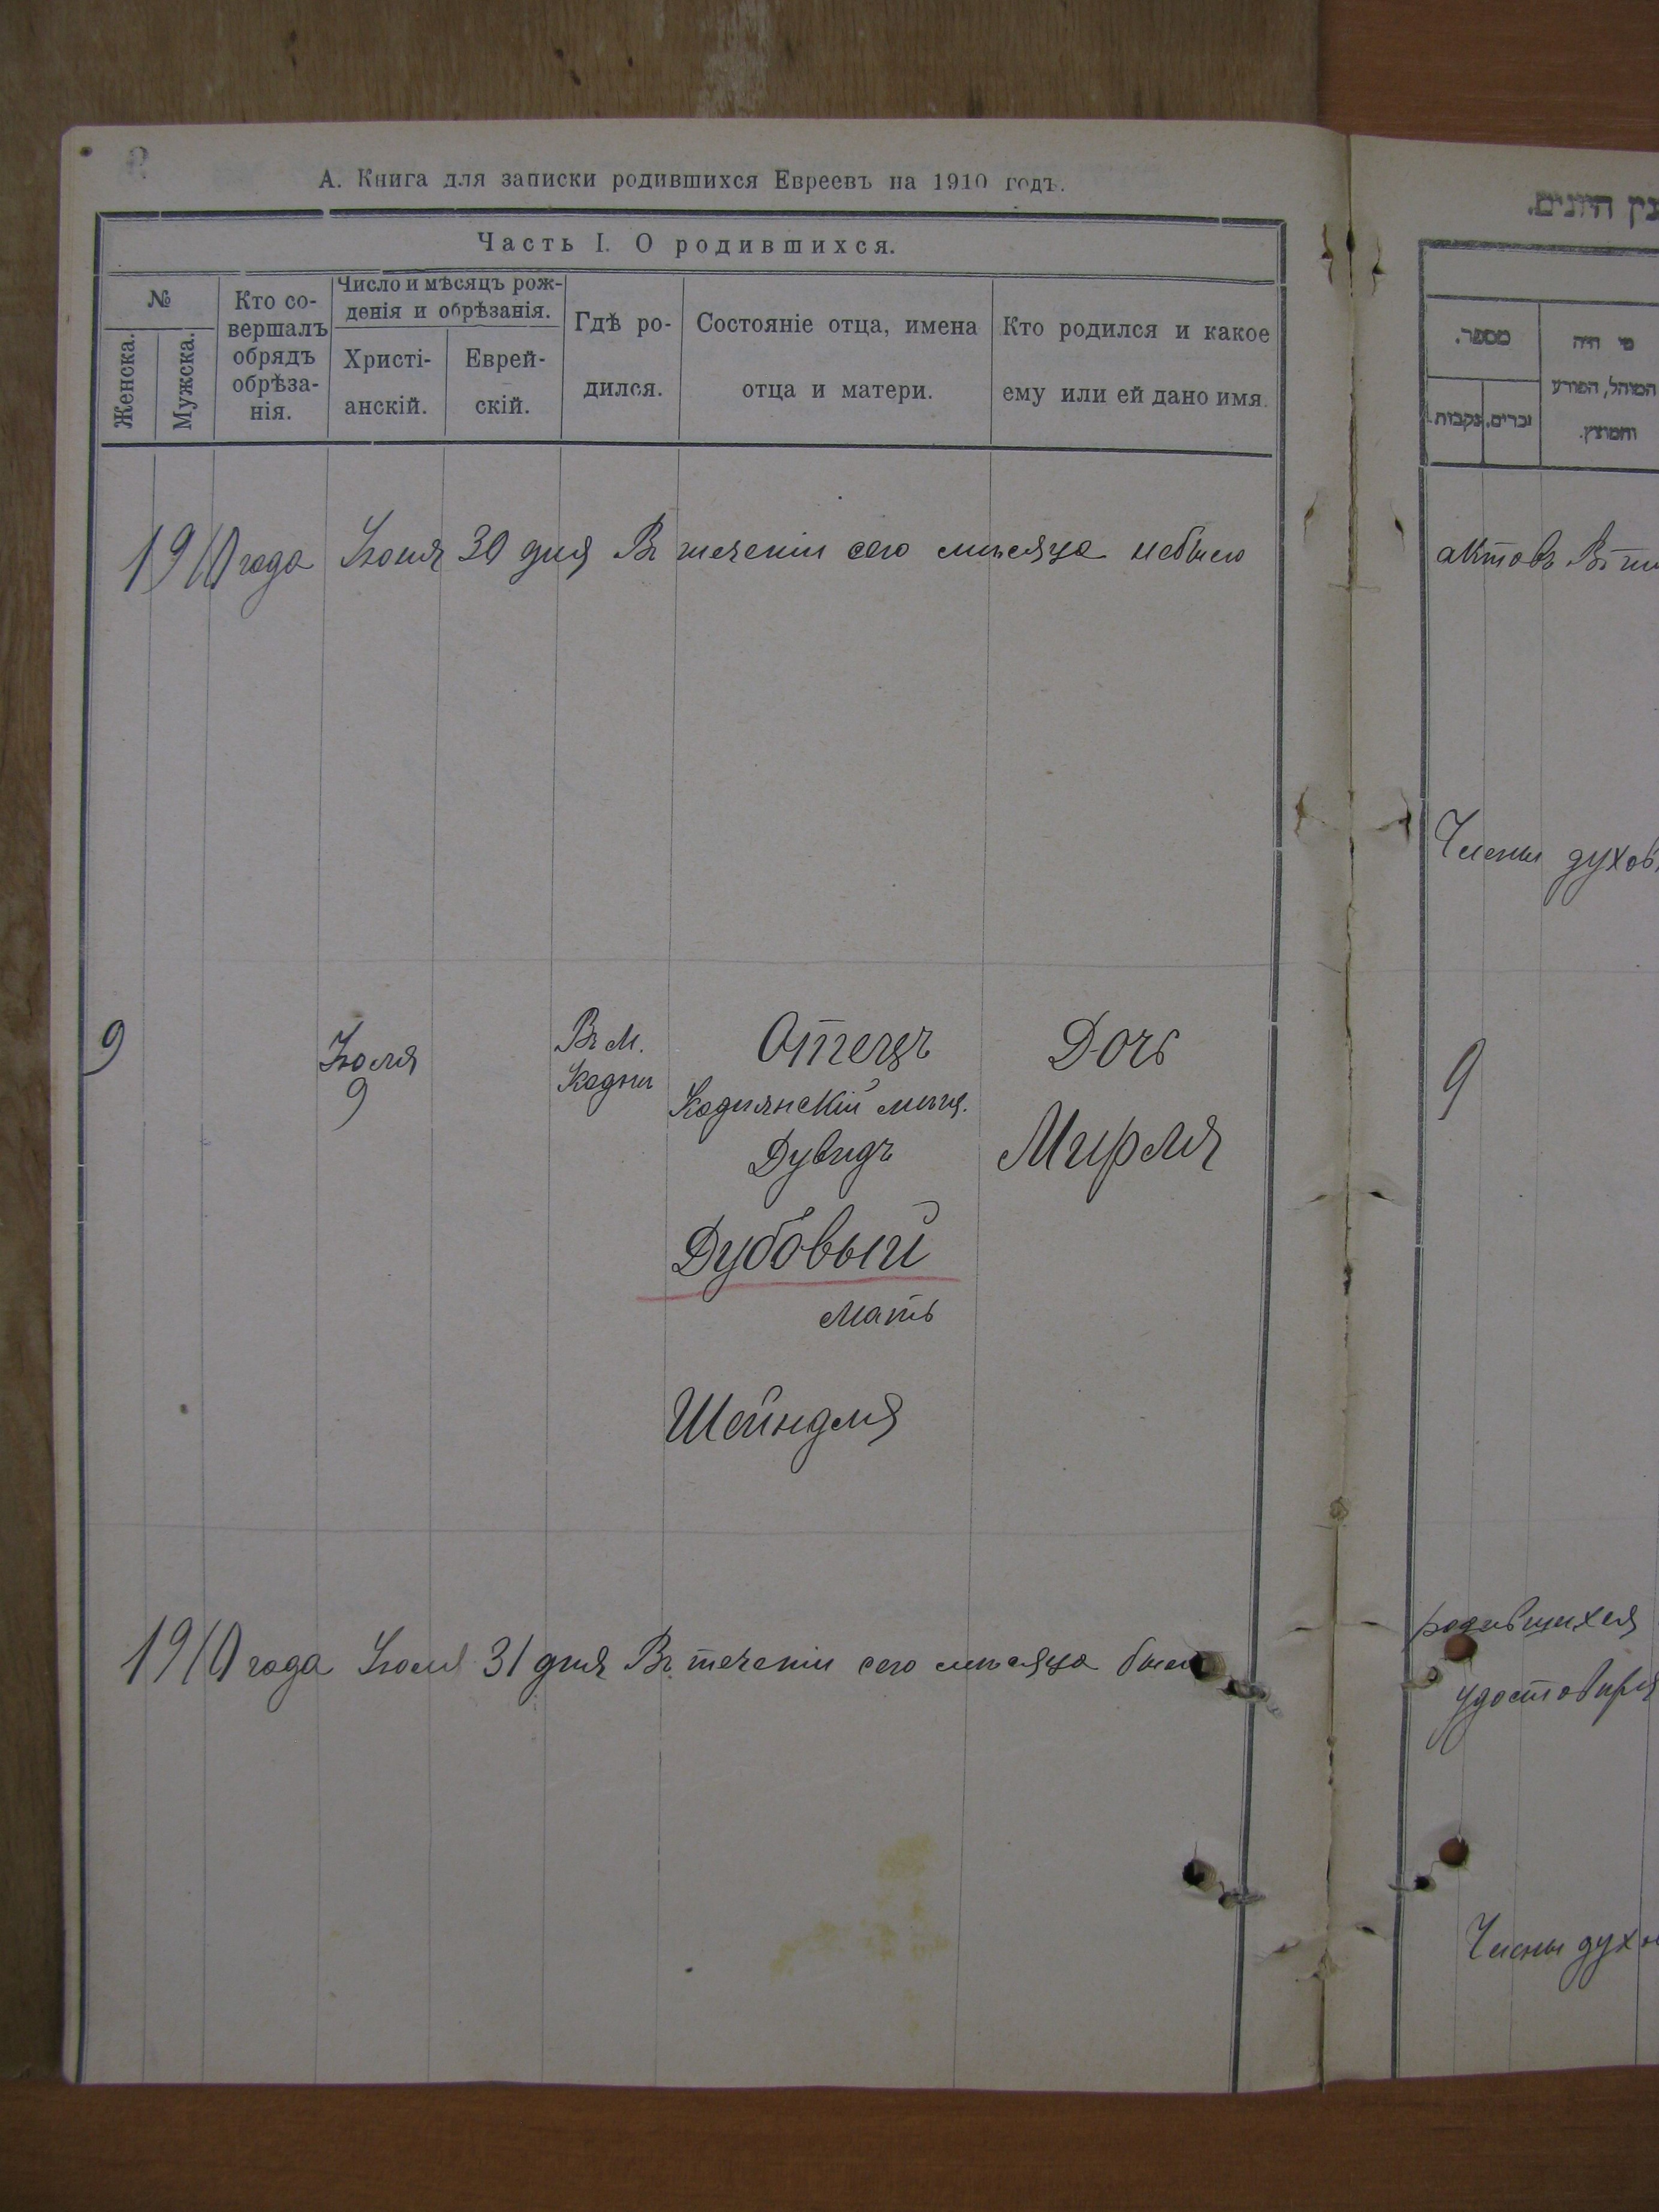 А. Книга для записки родившихся Евреевъ на 1910 годъ.
Часть I. О родившихся.
№
Женска.
Мужска.
Кто со-
вершалъ
обрядъ
обрѣза-
нія.
Число и мѣсяцъ рож-
денія и обрѣзанія.
Христі-
анскій.
Еврей-
скій.
Гдѣ ро-
дился.
Состояніе отца, имена
отца и матери.
Кто родился и какое
ему или ей дано имя.
1910 года Іюня 30 дня Въ теченіи сего мѣсяца небыло
9
Іюля
9
Въ м.
Кодни
Отецъ
Коднянскій мѣщ.
Дувидъ
Дубовый
мать
Шейндля
Дочь
Мирля
1910 года Іюля 31 дня Въ теченіи сего мѣсяца было
היונים.
מספר.
נקבות.
זכרים.
מי היה
המוהל, הפורע
והמוצץ.
актовъ Въ
Члены духов
9
родившихся
удостовѣря
Члены духо